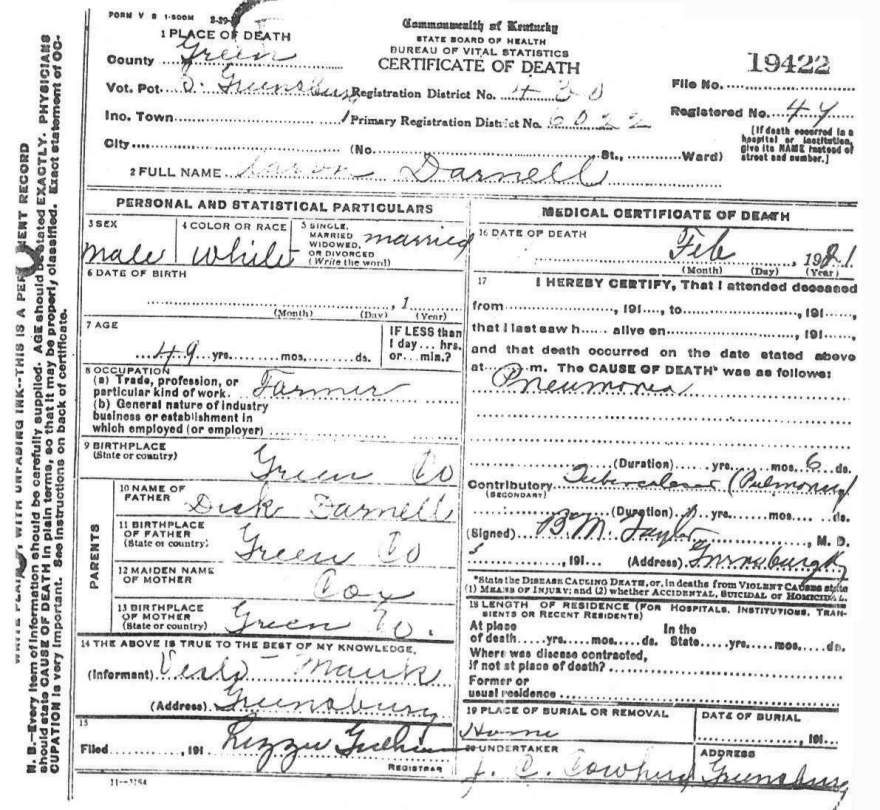 FORM V S 1-500M 3-29-
Commonwealth of Kentucky
STATE BOARD OF HEALTH
BUREAU OF VITAL STATISTICS
CERTIFICATE OF DEATH
19422
1 PLACE OF DEATH
County Green
Vot. Pct. S. Greensburg Registration District No. 430 File No.
Ino. Town Primary Registration District No. 6022 Registered No. 47
City (No. St., Ward)
[If death occurred in a hospital or institution, give its NAME instead of street and number.]
2 FULL NAME Aaron Darnell
PERSONAL AND STATISTICAL PARTICULARS
3 SEX male
4 COLOR OR RACE White
5 SINGLE, MARRIED WIDOWED, OR DIVORCED (Write the word) married
6 DATE OF BIRTH
, 1
(Month) (Day) (Year)
7 AGE
49 yrs. mos. ds.
IF LESS than 1 day... hrs. or... min.?
8 OCCUPATION
(a) Trade, profession, or particular kind of work. Farmer
(b) General nature of industry
business or establishment in
which employed (or employer)
9 BIRTHPLACE
(State or country) Green Co
PARENTS
10 NAME OF FATHER Dick Darnell
11 BIRTHPLACE OF FATHER (State or country) Green Co
12 MAIDEN NAME OF MOTHER Cox
13 BIRTHPLACE OF MOTHER (State or country) Green Co.
14 THE ABOVE IS TRUE TO THE BEST OF MY KNOWLEDGE,
(Informant)
(Address) Greensburg
15
Filed , 191 Lizzie
REGISTRAR
11-3184
MEDICAL CERTIFICATE OF DEATH
16 DATE OF DEATH
Feb , 1921
(Month) (Day) (Year)
17 I HEREBY CERTIFY, That I attended deceased
from , 191 , to , 191 ,
that I last saw h alive on , 191 ,
and that death occurred on the date stated above
at m. The CAUSE OF DEATH* was as follows:
Pneumonia
(Duration) yrs. mos. 6 ds.
Contributory (SECONDARY) Tuberculosis (Pulmonary)
(Duration) yrs. mos. ds.
(Signed) B. M. Taylor, M. D.
, 191 (Address) Greensburg Ky
*State the DISEASE CAUSING DEATH, or, in deaths from VIOLENT CAUSES state
(1) MEANS OF INJURY; and (2) whether ACCIDENTAL, SUICIDAL or HOMICIDAL.
18 LENGTH OF RESIDENCE (FOR HOSPITALS, INSTITUTIONS, TRAN-
SIENTS OR RECENT RESIDENTS)
At place of death yrs. mos. ds. In the State yrs. mos. ds.
Where was disease contracted,
if not at place of death?
Former or
usual residence
19 PLACE OF BURIAL OR REMOVAL Home
DATE OF BURIAL
, 191
20 UNDERTAKER J. C. Cowherd
ADDRESS Greensburg
WRITE PLAINLY, WITH UNFADING INK--THIS IS A PERMANENT RECORD
N. B.--Every item of information should be carefully supplied. AGE should be stated EXACTLY. PHYSICIANS
should state CAUSE OF DEATH in plain terms, so that it may be properly classified. Exact statement of OC-
CUPATION is very important. See instructions on back of certificate.